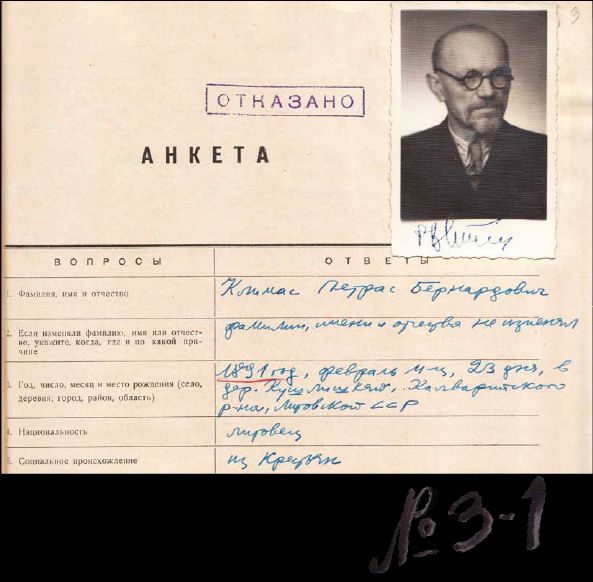 3
ОТКАЗАНО
АНКЕТА
ВОПРОСЫ
ОТВЕТЫ
1. Фамилия, имя и отчество
Климас Петрас Бернардович
2. Если изменяли фамилию, имя или отчест-
во, укажите, когда, где и по какой при-
чине
фамилии, имени и отчества не изменял
3. Год, число, месяц и место рождения (село,
деревня, город, район, область)
1891 год, февраль м-ц, 23 дня, в
дер. Кушлишкяй, Калварийского
р-на, Литовской ССР
4. Национальность
литовец
5. Социальное происхождение
из Крестьян
№ 3-1